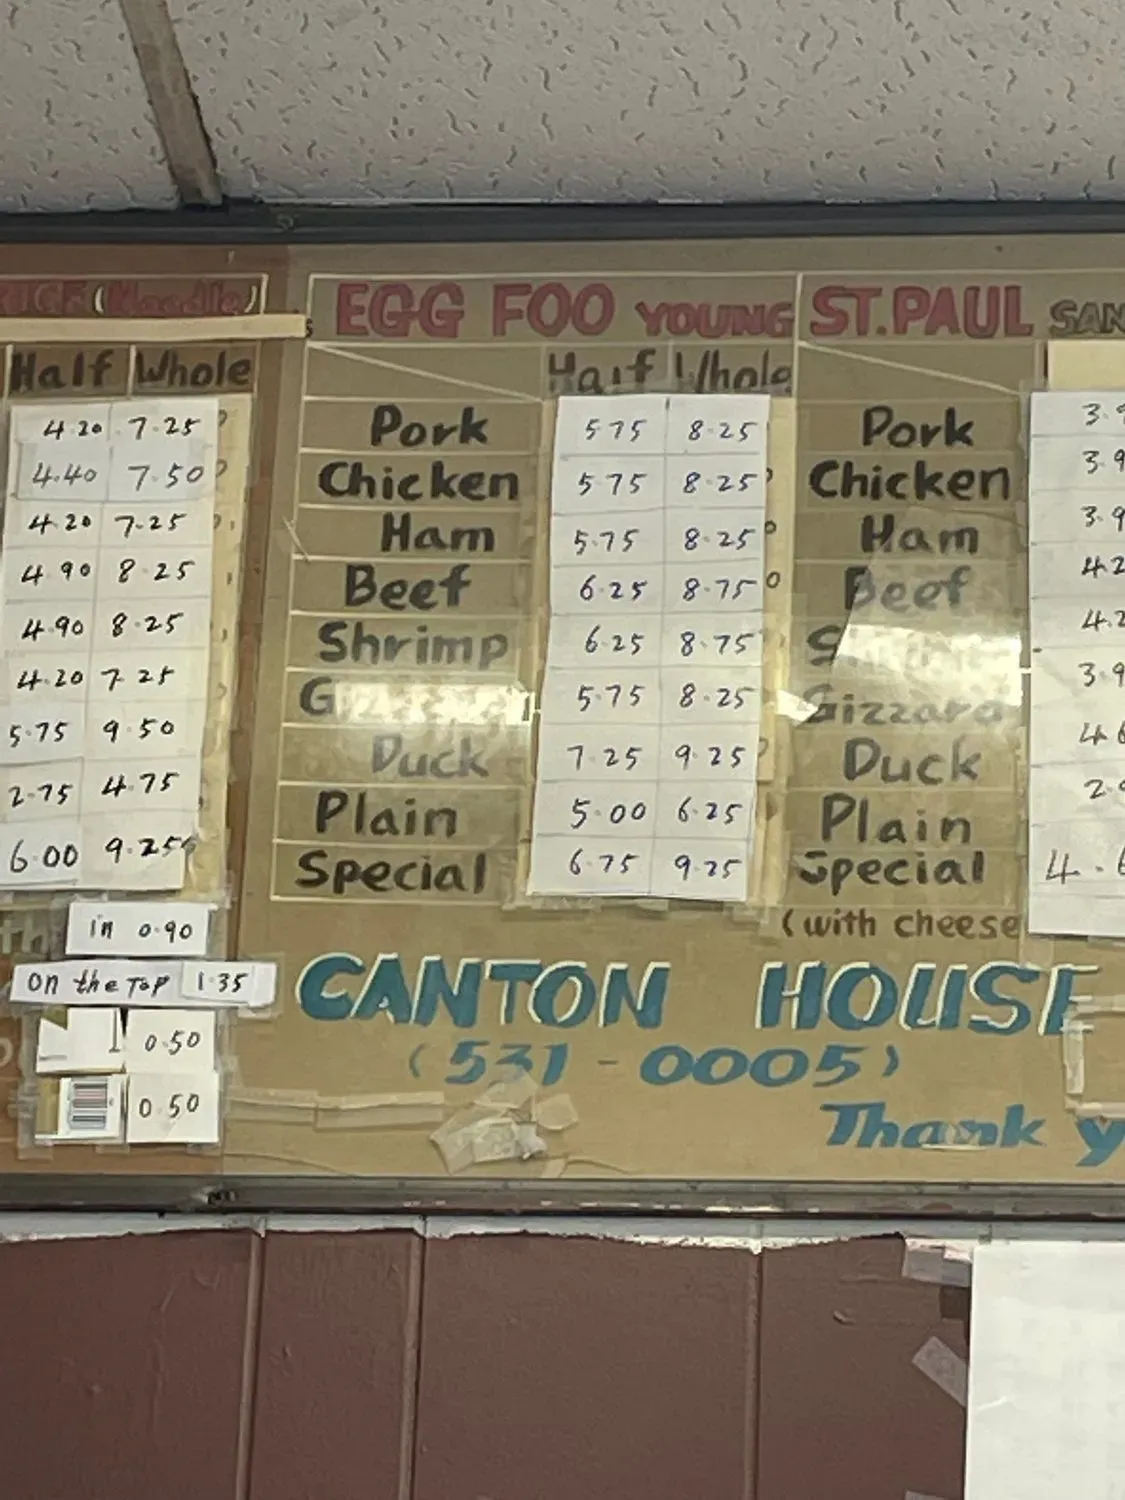 (Noodle) EGG FOO YOUNG ST. PAUL SAN
Half Whole Half Whole
4.20 7.25 Pork 5.75 8.25 Pork 3.9
4.40 7.50 Chicken 5.75 8.25 Chicken 3.9
4.20 7.25 Ham 5.75 8.25 Ham 3.9
4.90 8.25 Beef 6.25 8.75 Beef 4.2
4.90 8.25 Shrimp 6.25 8.75 4.2
4.20 7.25 5.75 8.25 Gizzard 3.9
5.75 9.50 Duck 7.25 9.25 Duck 4.6
2.75 4.75 Plain 5.00 6.25 Plain 2.9
6.00 9.25 Special 6.75 9.25 Special 4.6
(with cheese
in 0.90
On the Top 1.35
CANTON HOUSE
0.50
(531-0005)
0.50
Thank y